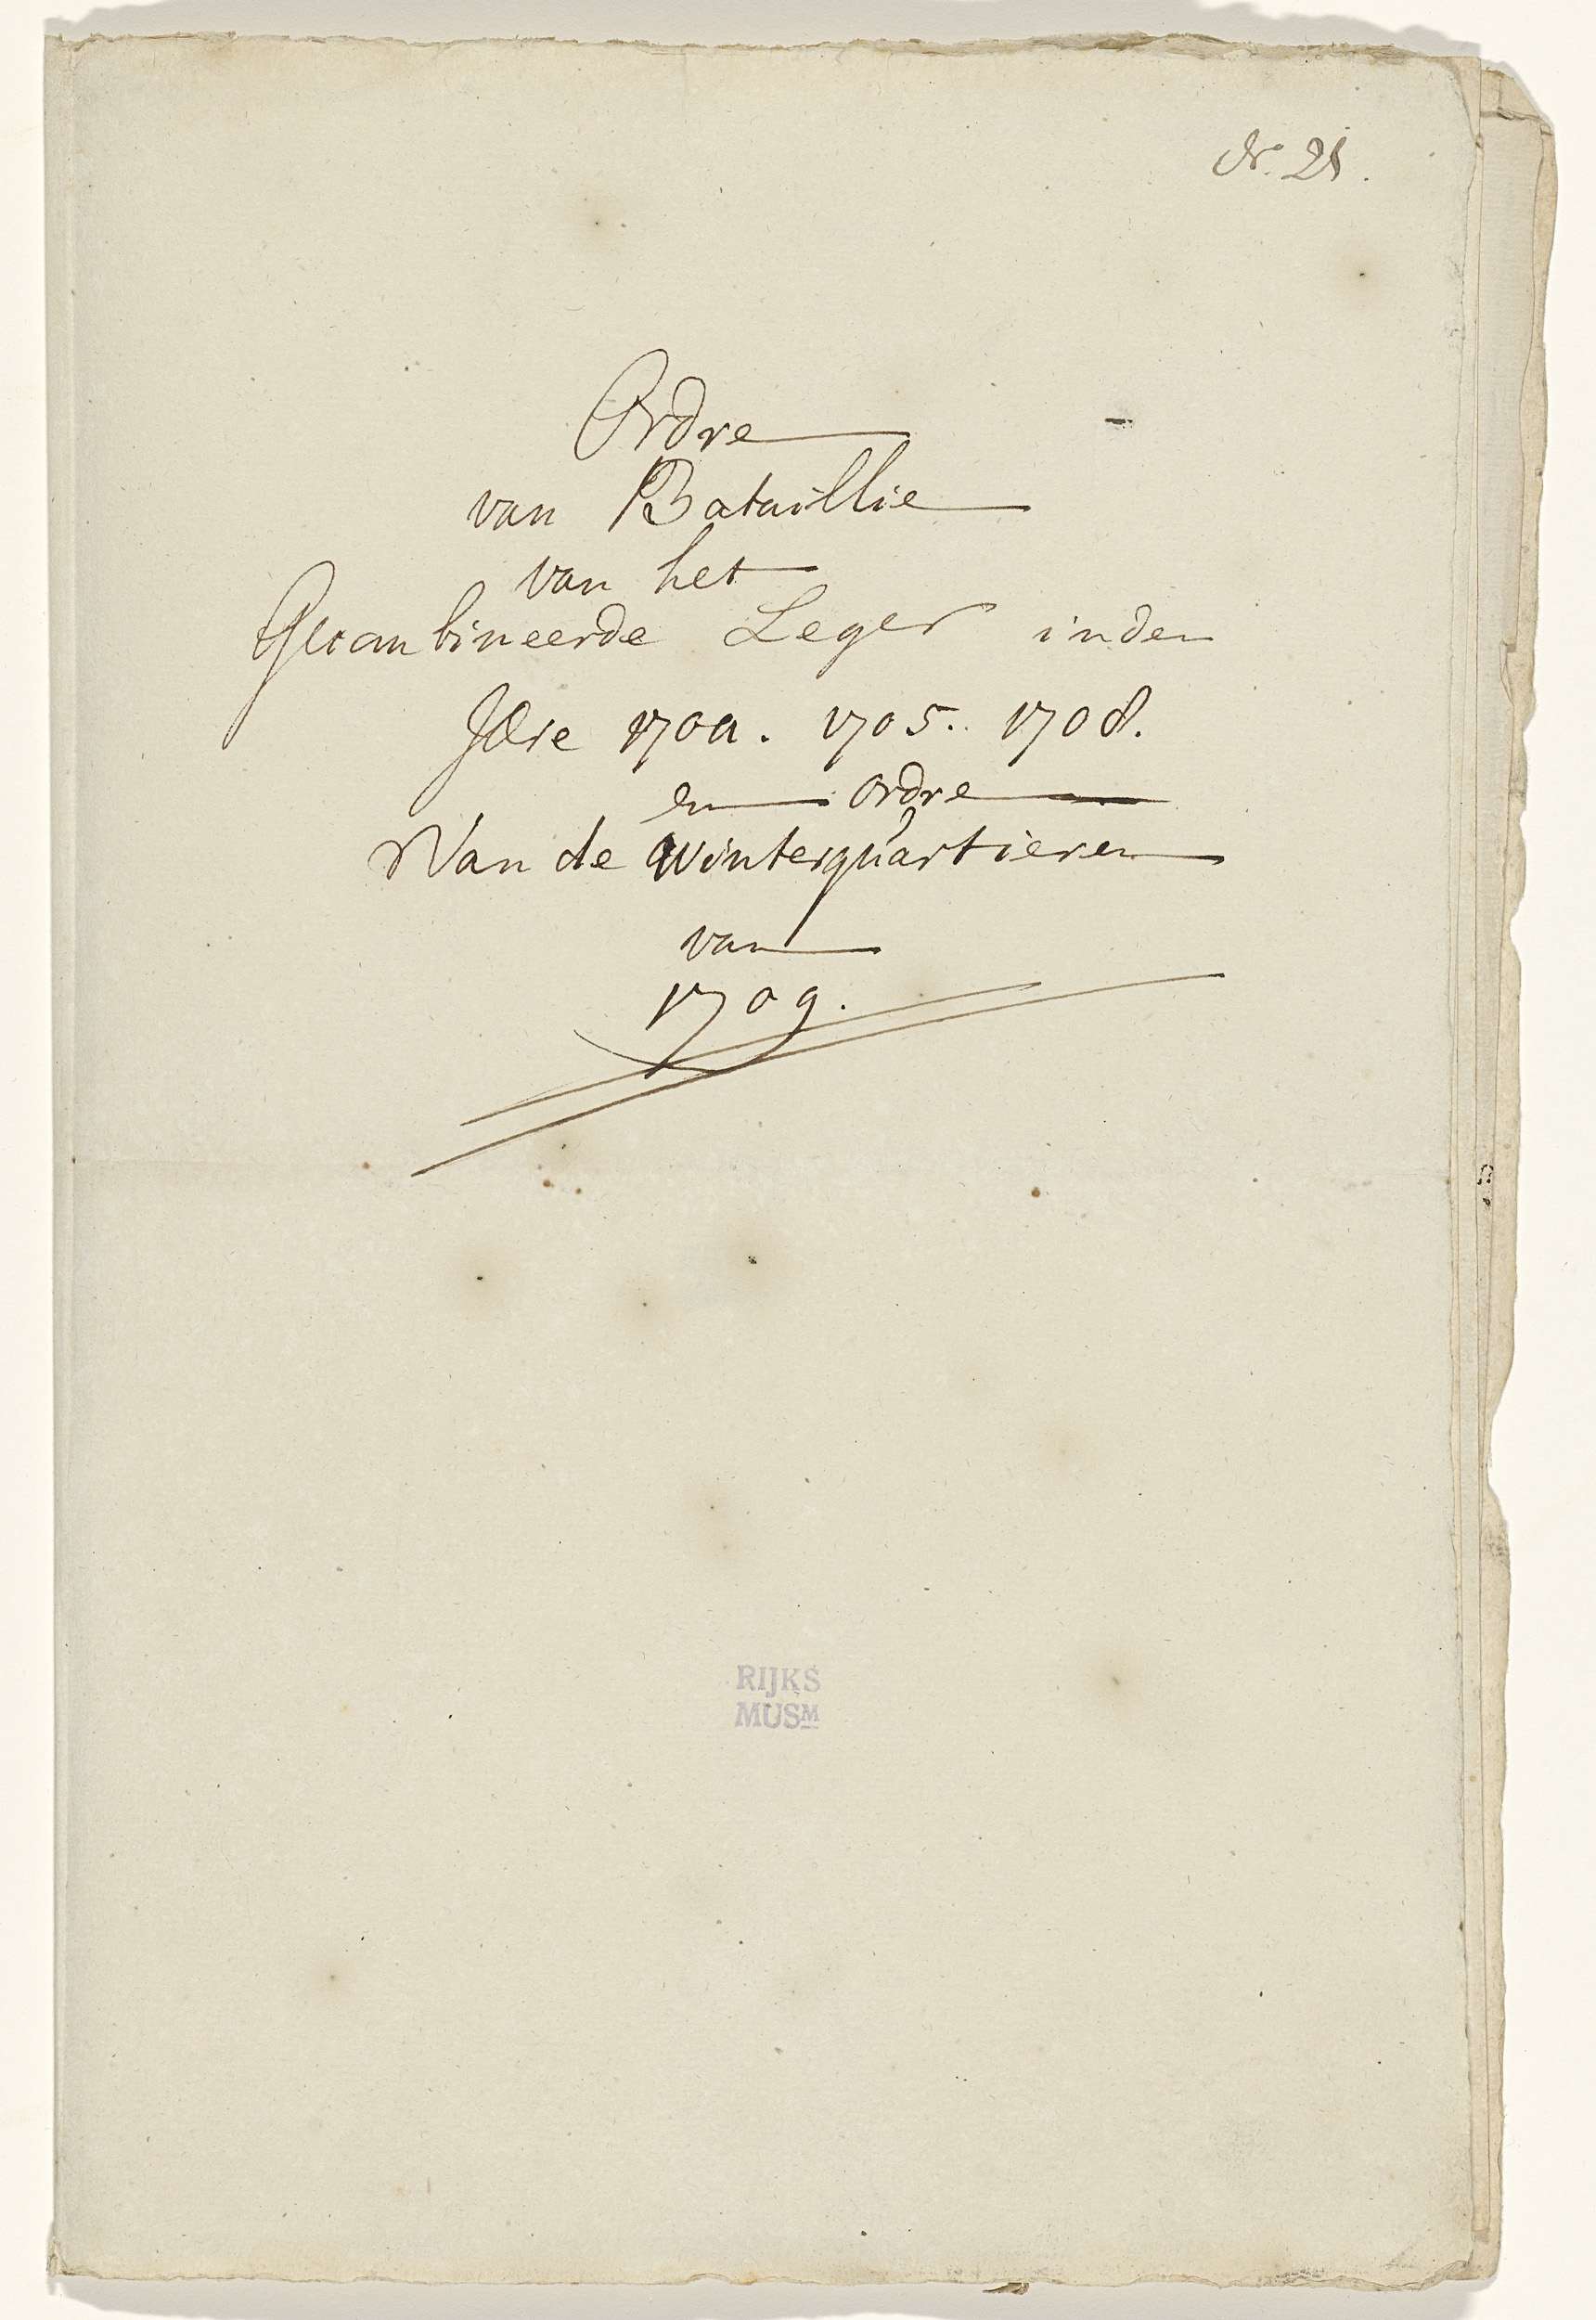 N. 21.
Ordre
van Bataillie
van het
Gecombineerde Leger inden
Jare 1704. 1705. 1708.
en ordre
Van de Winterquartieren
van
1709.
RIJKS
MUSM